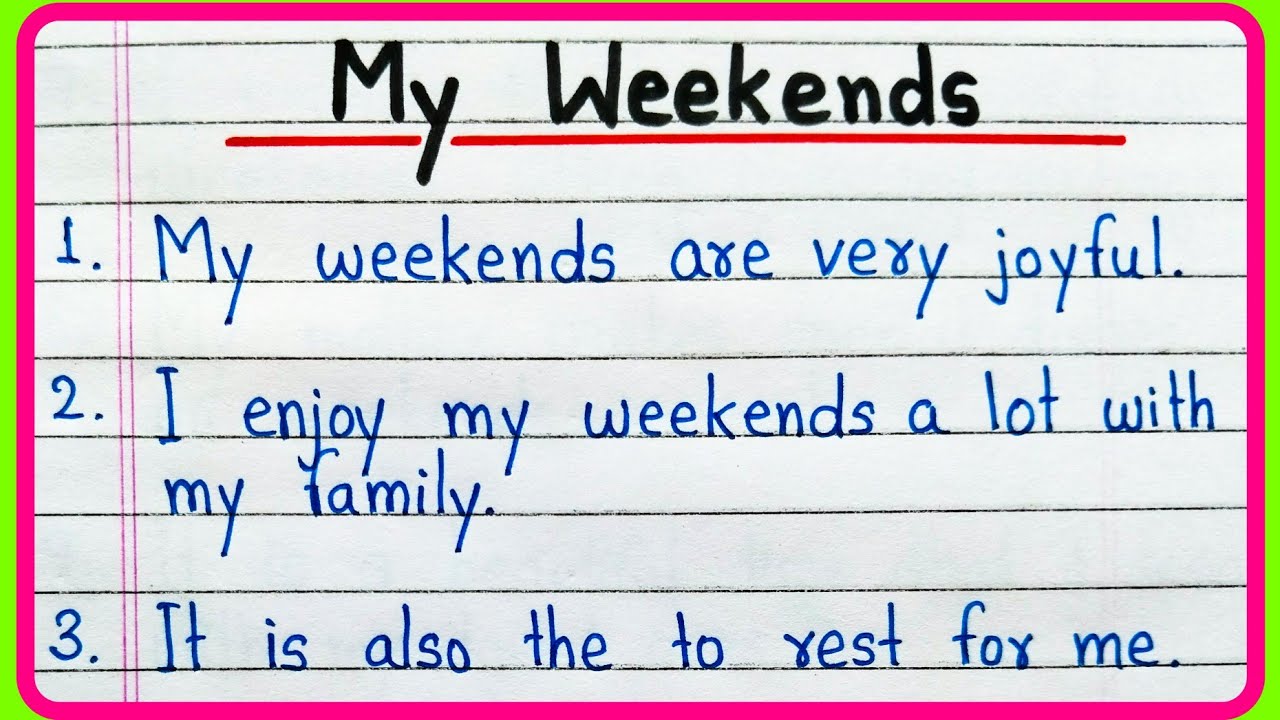 My Weekends
1. My weekends are very joyful.
2. I enjoy my weekends a lot with
my family.
3. It is also the to rest for me.